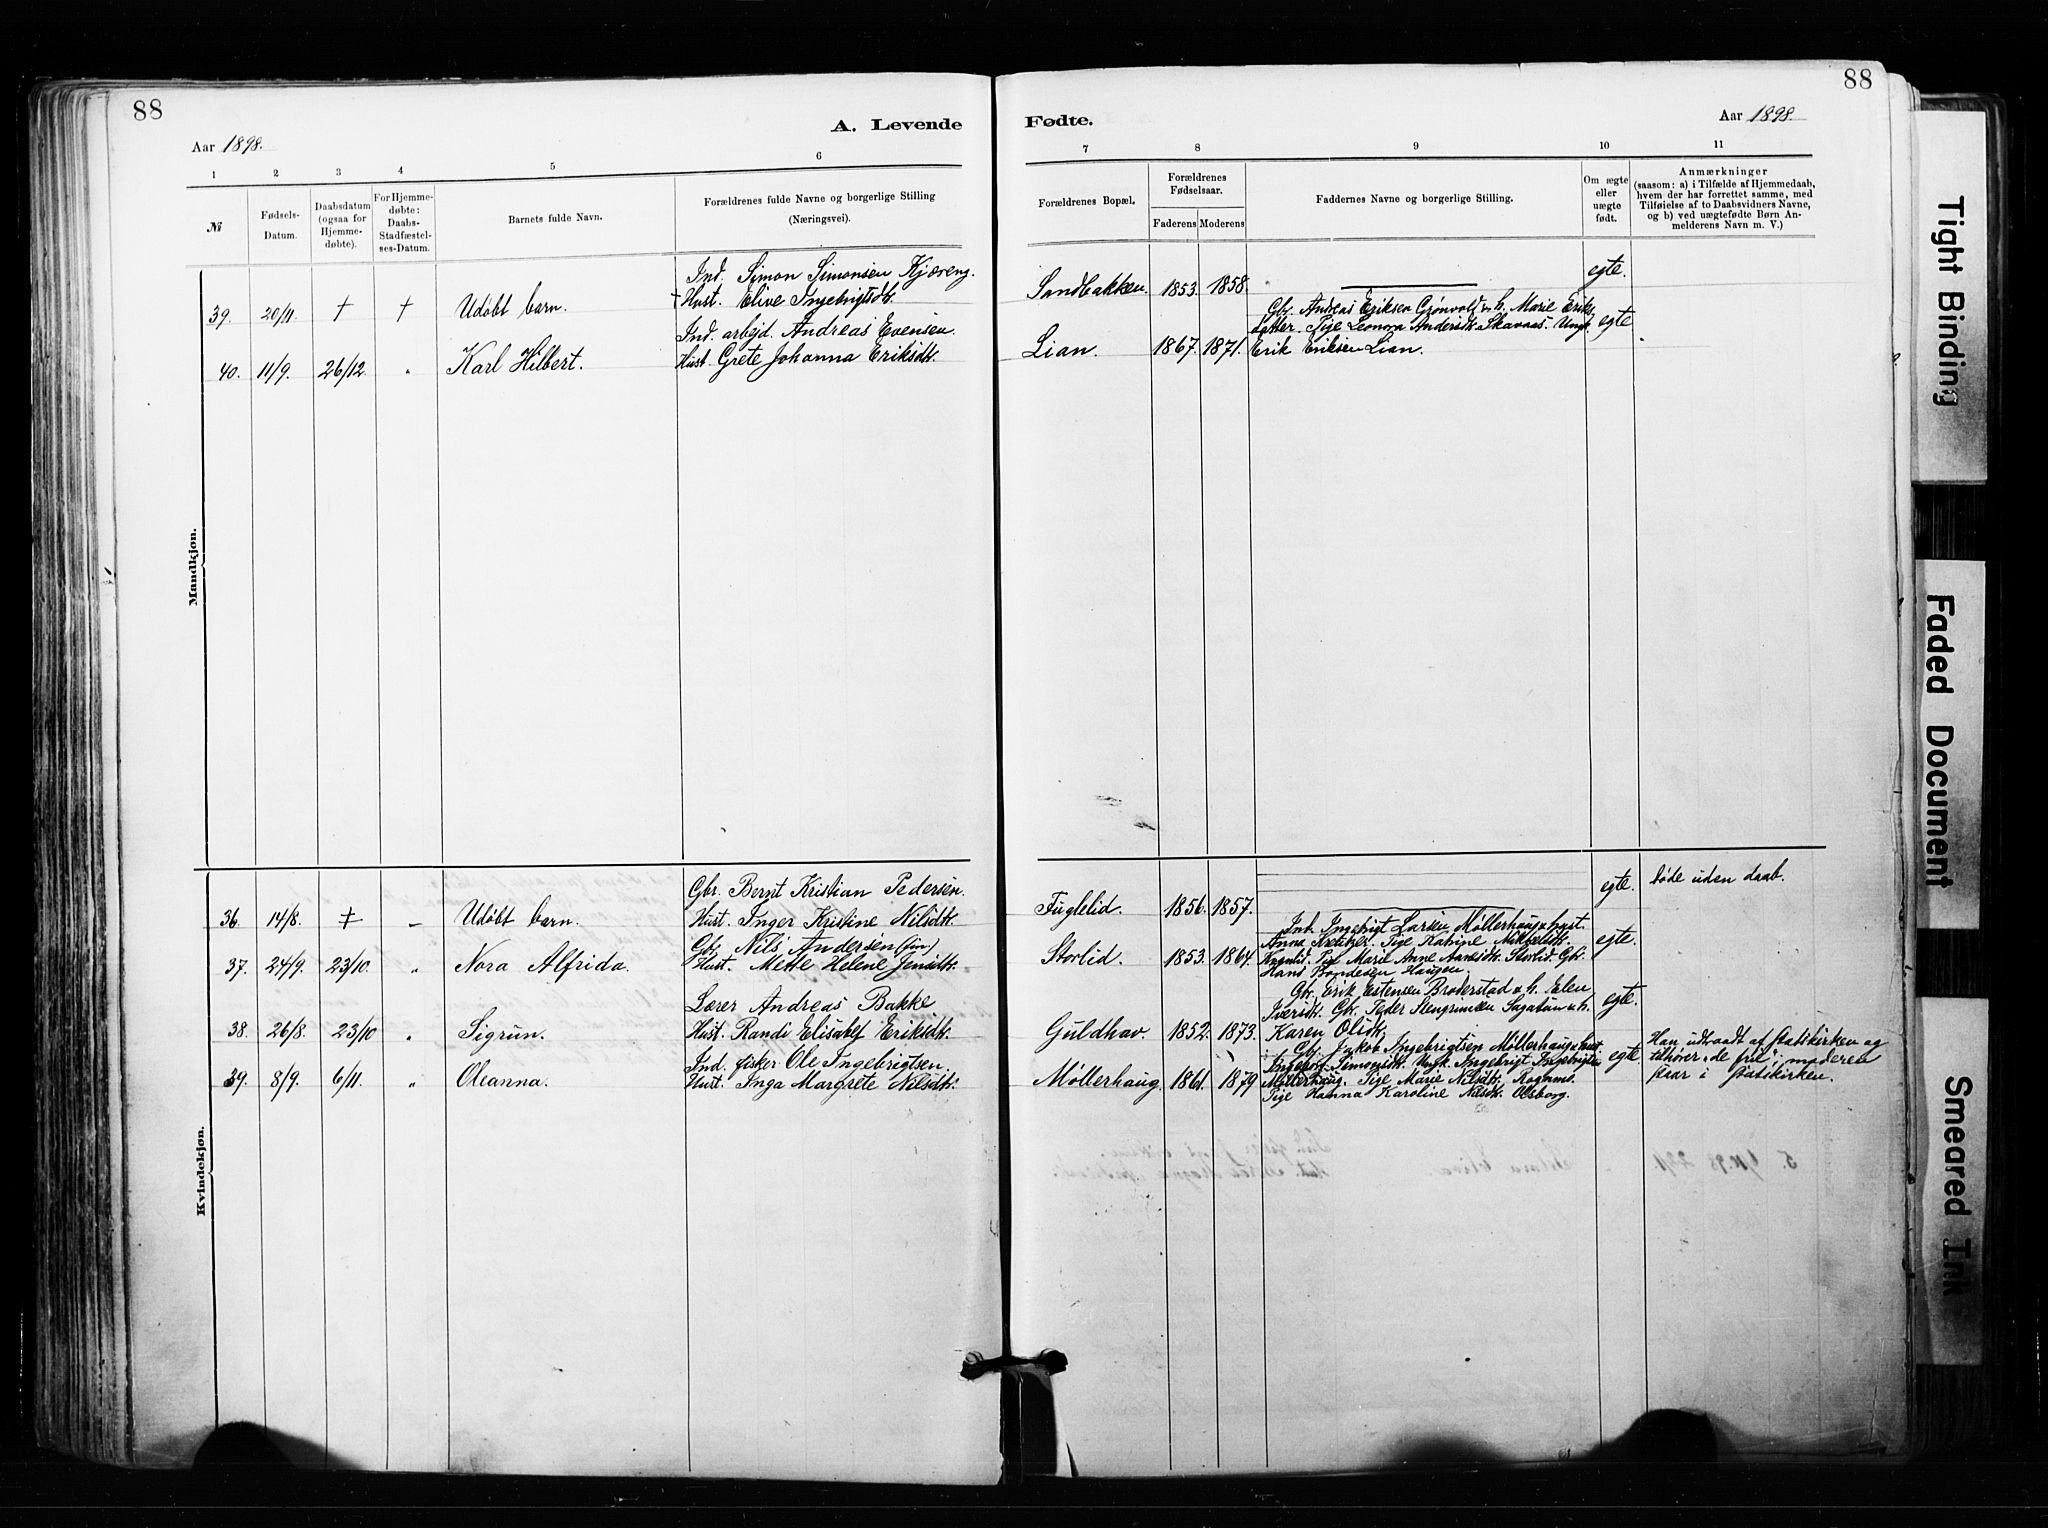 88
88
A. Levende
Fødte.
Aar 1898.
Aar 1898.
1 2 3 4 5 6
7 8 9 10 11
№
Fødsels-
Datum.
Daabsdatum
(ogsaa for
Hjemme-
døbte).
For Hjemme-
døbte:
Daabs-
Stadfæstel-
ses-Datum.
Barnets fulde Navn.
Forældrenes fulde Navne og borgerlige Stilling
(Næringsvei).
Forældrenes Bopæl.
Forældrenes
Fødselsaar.
Faderens Moderens
Faddernes Navne og borgerlige Stilling.
Om ægte
eller
uægte
født.
Anmærkninger
(saasom: a) i Tilfælde af Hjemmedaab,
hvem der har forrettet samme, med
Tilføielse af to Daabsvidners Navne,
og b) ved uægtefødte Børn An-
melderens Navn m. V.)
Mandkjøn.
Ind. Simon Simonsen Kjæreng.
39. 20/11. † † Udøbt barn. Hust. Elive Ingebrigtsdtr.
Sandbakken. 1853. 1858. egte.
Ind. arbejd. Andreas Evensen.
40. 11/9. 26/12. " Karl Hilbert. Hust. Grete Johanna Eriksdtr.
Gbr. Andreas Eriksen Grønvold o. h. Marie Eriks-
datter. Pige Leonora Andersdtr. Skavaas. Ungk.
Lian. 1867. 1871. Erik Eriksen Lian. egte
Kvindekjøn.
Gbr. Bernt Kristian Pedersen.
36. 14/8. † – Udøbt barn. Hust. Inger Kristine Nilsdtr.
Fuglelid. 1856. 1857. egte. døde uden daab.
Gbr. Nils Andersen (jun)
37. 24/9. 23/10. " Nora Alfrida. Hust. Mette Helene Jensdtr.
Ind. Ingebrigt Larsen Møllerhaug o. hust.
Anna Pige Katrine Mikkelsdtr.
Storlid. 1853. 1864. Pige Marie Anne Storlid. Gbr. egte.
Hans Haugen.
Lærer Andreas Bakke
38. 26/8. 23/10 " Sigrun. Hust. Randi Elisabet Eriksdtr.
Gbr. Erik Estensen Broderstad o. h. Elen
Iversdtr. Gbr. Peder Stengrimsen Sagatun o. h.
Guldhav. 1852. 1873. Karen Olsdtr. egte.
Ind. fisker Ole Ingebrigtsen.
39. 8/9. 6/11. " Oleanna. Hust. Inga Margrete Nilsdtr.
Gbr. Jakob Ingebrigtsen Møllerhaug o. hust
Ingeborg Simonsdtr. Ungk. Ingebrigt Ingebrigtsen
Møllerhaug. 1861. 1879 Møllerhaug. Pige Marie Nilsdtr. Rognmo. egte
Pige Hanna Karoline Nilsdtr. Olsborg.
Han udtraadt af statskirken og
tilhører "de frie"; moderen
staar i statskirken.
Tight Binding
Faded Document
Smeared Ink